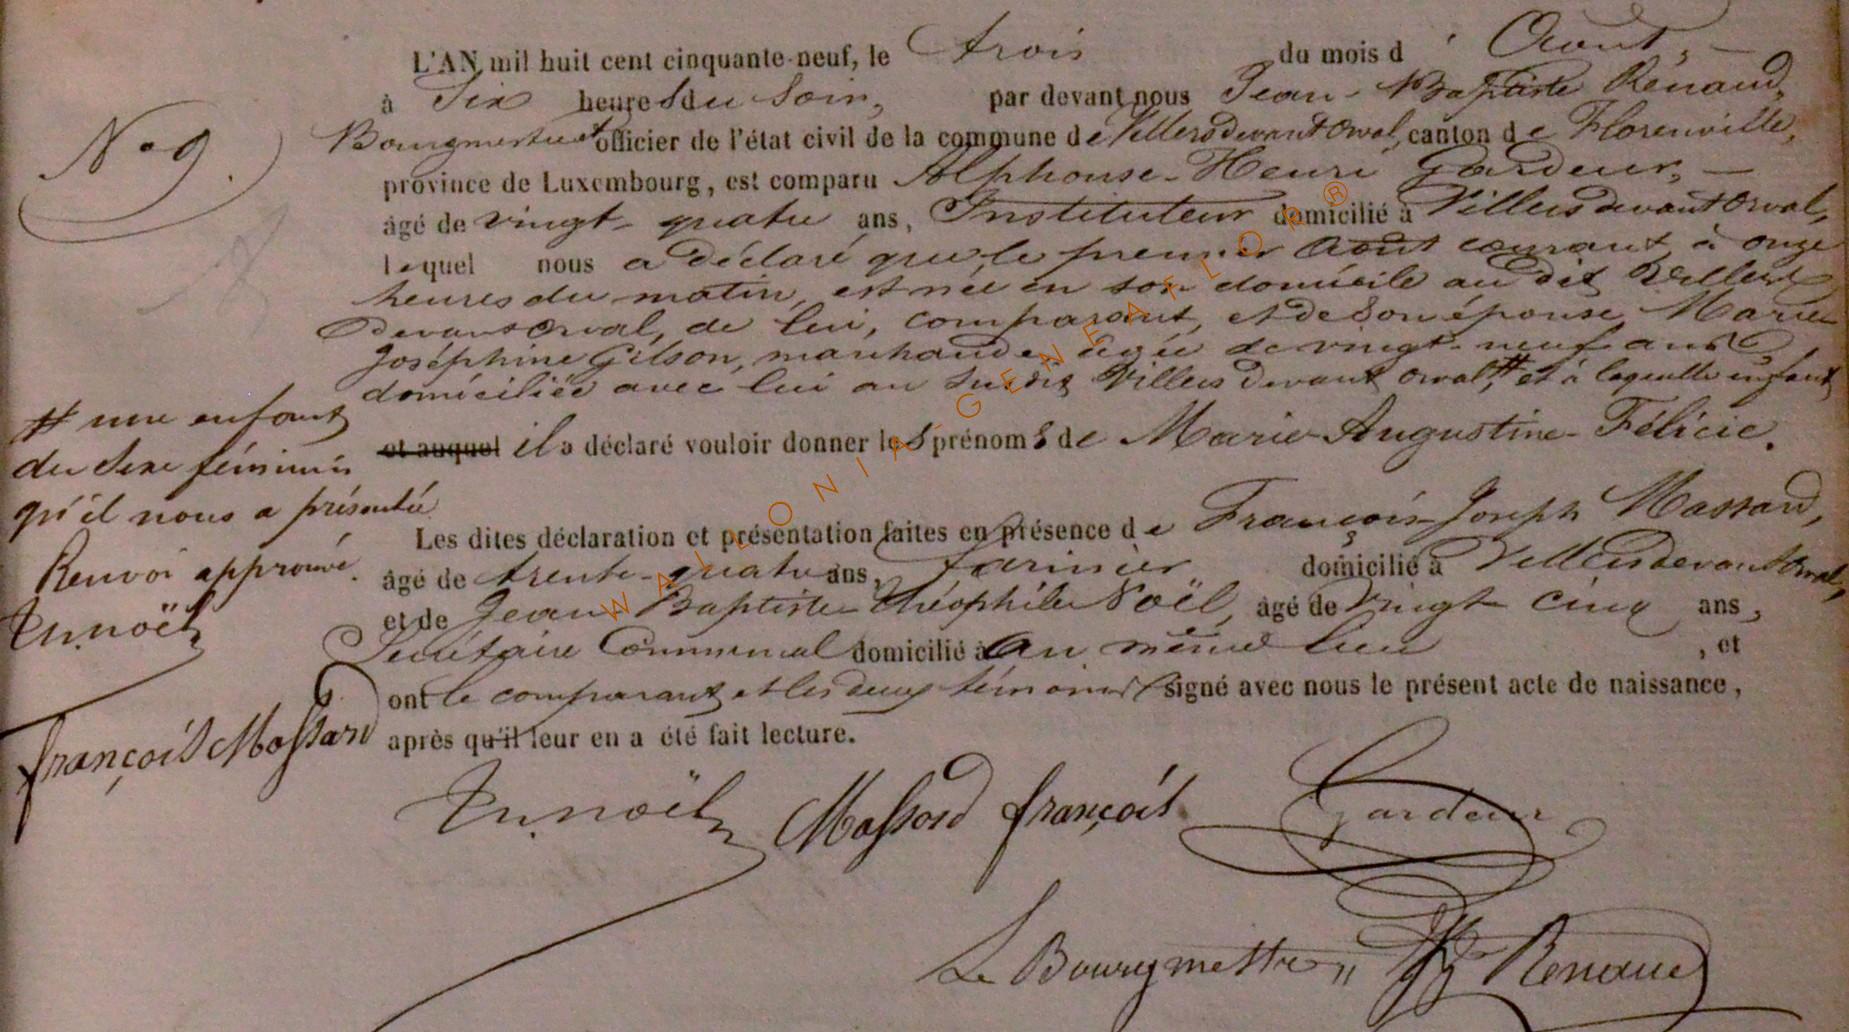 L'AN mil huit cent cinquante-neuf, le trois du mois d' Aout,
à Six heures du Soir, par devant nous Jean-Baptiste Renaud,
N° 9.
Bourgmestre et officier de l'état civil de la commune de Villers devant Orval, canton de Florenville,
province de Luxembourg, est comparu Alphonse-Henri Gardeur,
âgé de vingt-quatre ans, Instituteur domicilié à Villers devant Orval,
lequel nous a déclaré que le premier Aout courant, à onze
heures du matin, est née en son domicile au dit Villers
devant Orval, de lui, comparant, et de Son épouse Marie
Joséphine Gilson, marchande, âgée de vingt-neuf ans,
domiciliée avec lui au Susdit Villers devant Orval, # et à laquelle enfant
et auquel il a déclaré vouloir donner les prénoms de Marie-Augustine-Félicie.
# une enfant
du Sexe féminin
qu'il nous a présentée
Renvoi approuvé.
Th. Noël
François Massard
Les dites déclaration et présentation faites en présence de François-Joseph Massard,
âgé de trente-quatre ans, farinier domicilié à Villers devant Orval,
et de Jean-Baptiste Théophile Noël, âgé de Vingt cinq ans,
Secrétaire Communal domicilié à au même lieu , et
ont le comparant et les deux témoins signé avec nous le présent acte de naissance,
après qu'il leur en a été fait lecture.
Th. Noël Massard François Gardeur
Le Bourgmestre JB Renaud
WALLONIA-GENEAFLOR®